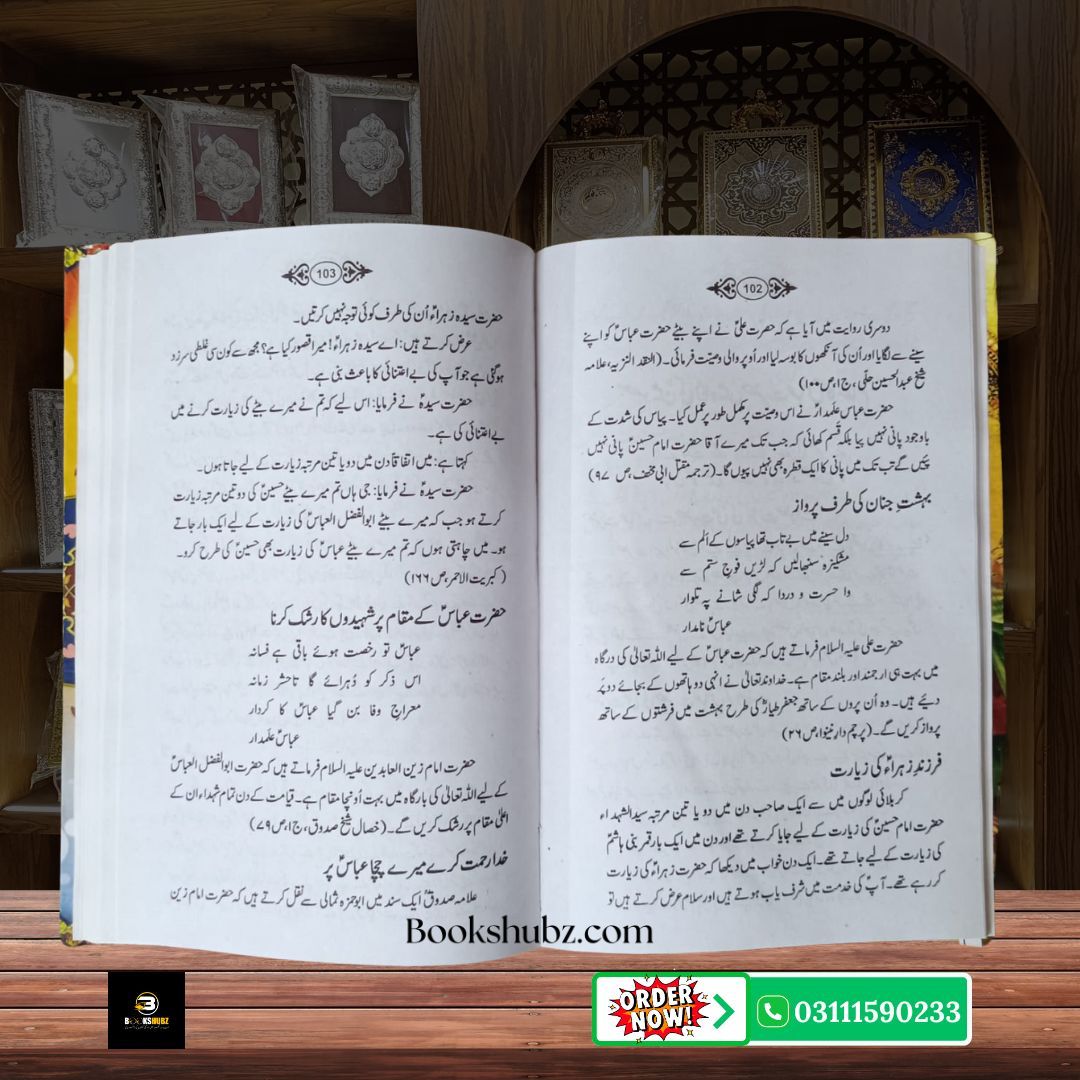 102
دوسری روایت میں آیا ہے کہ حضرت علیؑ نے اپنے بیٹے حضرت عباسؑ کو اپنے
سینے سے لگایا اور اُن کی آنکھوں کا بوسہ لیا اور اُوپر والی وصیت فرمائی۔ (العقد النزیہ، علامہ
شیخ عبدالحسین حلّی، ج۱، ص۱۰۰)
حضرت عباس علمدارؑ نے اس وصیت پر مکمل طور پر عمل کیا۔ پیاس کی شدت کے
باوجود پانی نہیں پیا بلکہ قسم کھائی کہ جب تک میرے آقا حضرت امام حسینؑ پانی نہیں
پئیں گے تب تک میں پانی کا ایک قطرہ بھی نہیں پیوں گا۔ (ترجمہ مقتل ابی مخنف، ص ۹۷)
بہشتِ جنان کی طرف پرواز
دل سینے میں بے تاب تھا پیاسوں کے اَلم سے
مشکیزہ سنبھالیں کہ لڑیں فوجِ ستم سے
وا حسرت و دردا کہ لگی شانے پہ تلوار
عباسؑ نامدار
حضرت علی علیہ السلام فرماتے ہیں کہ حضرت عباسؑ کے لیے اللہ تعالیٰ کی درگاہ
میں بہت ہی ارجمند اور بلند مقام ہے۔ خداوند تعالیٰ نے انہی دو ہاتھوں کے بجائے دو پَر
دیئے ہیں۔ وہ اُن پروں کے ساتھ جعفر طیارؑ کی طرح بہشت میں فرشتوں کے ساتھ
پرواز کریں گے۔ (پرچم دار نینوا، ص۲۶)
فرزندِ زہراءؑ کی زیارت
کربلائی لوگوں میں سے ایک صاحب دن میں دو یا تین مرتبہ سید الشہداء
حضرت امام حسینؑ کی زیارت کے لیے جایا کرتے تھے اور دن میں ایک بار قمر بنی ہاشمؑ
کی زیارت کے لیے جاتے تھے۔ ایک دن خواب میں دیکھا کہ حضرت زہراءؑ کی زیارت
کر رہے تھے۔ آپؑ کی خدمت میں شرف یاب ہوتے ہیں اور سلام عرض کرتے ہیں تو
103
حضرت سیدہ زہراءؑ اُن کی طرف کوئی توجہ نہیں کرتیں۔
عرض کرتے ہیں: اے سیدہ زہراءؑ! میرا قصور کیا ہے؟ مجھ سے کون سی غلطی سرزد
ہوگئی ہے جو آپ کی بے اعتنائی کا باعث بنی ہے۔
حضرت سیدہؑ نے فرمایا: اس لیے کہ تم نے میرے بیٹے کی زیارت کرنے میں
بے اعتنائی کی ہے۔
کہتا ہے: میں اتفاقاً دن میں دو یا تین مرتبہ زیارت کے لیے جاتا ہوں۔
حضرت سیدہؑ نے فرمایا: جی ہاں تم میرے بیٹے حسینؑ کی دو تین مرتبہ زیارت
کرتے ہو جب کہ میرے بیٹے ابوالفضل العباسؑ کی زیارت کے لیے ایک بار جاتے
ہو۔ میں چاہتی ہوں کہ تم میرے بیٹے عباسؑ کی زیارت بھی حسینؑ کی طرح کرو۔
(کبریت الاحمر، ص۱۶۶)
حضرت عباسؑ کے مقام پر شہیدوں کا رشک کرنا
عباسؑ تو رخصت ہوئے باقی ہے فسانہ
اس ذکر کو دُہرائے گا تاحشر زمانہ
معراجِ وفا بن گیا عباسؑ کا کردار
عباسؑ علمدار
حضرت امام زین العابدین علیہ السلام فرماتے ہیں کہ حضرت ابوالفضل العباسؑ
کے لیے اللہ تعالیٰ کی بارگاہ میں بہت اُونچا مقام ہے۔ قیامت کے دن تمام شہداء ان کے
اعلیٰ مقام پر رشک کریں گے۔ (خصال شیخ صدوق، ج۱، ص۷۹)
خدا رحمت کرے میرے چچا عباسؑ پر
علامہ صدوقؒ ایک سند میں ابوحمزہ ثمالی سے نقل کرتے ہیں کہ حضرت امام زین
Bookshubz.com
BOOKSHUBZ
ORDER
NOW!
03111590233